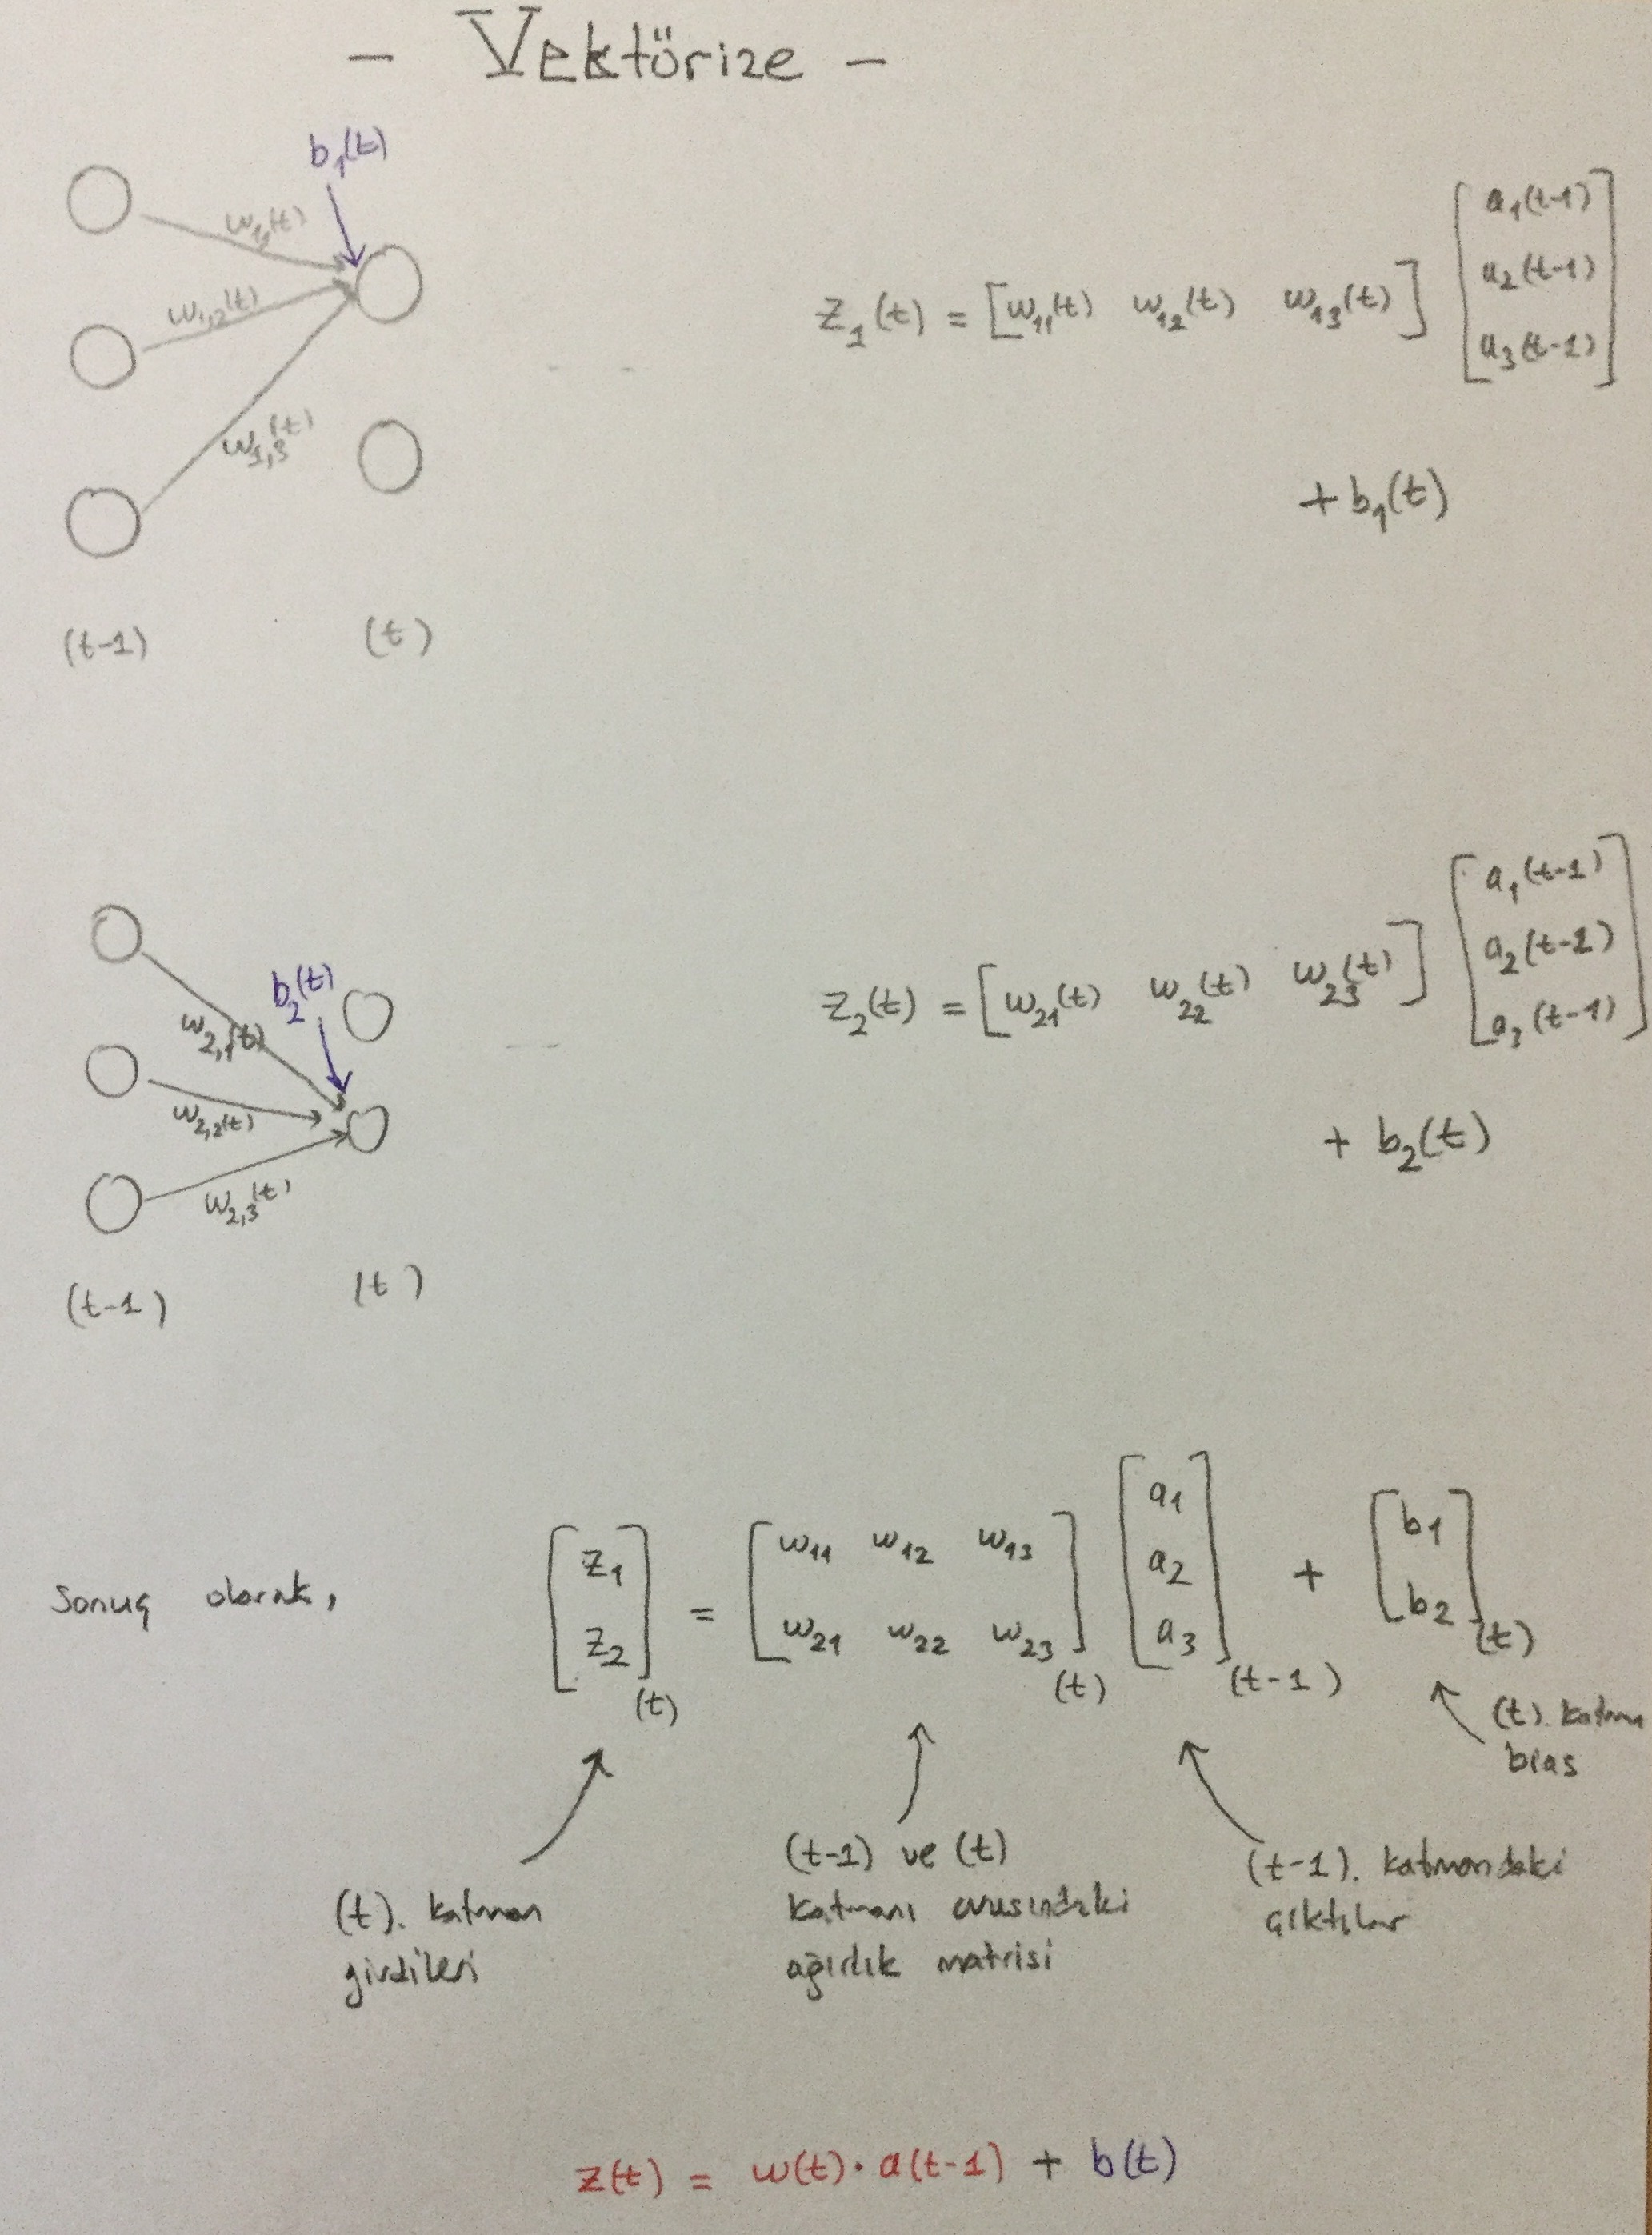 - Vektörize -
b₁(t)
w₁₁(t)
w₁,₂(t)
w₁,₃(t)
(t-1) (t)
z₁(t) = [w₁₁(t) w₁₂(t) w₁₃(t)] [a₁(t-1)
a₂(t-1)
a₃(t-1)]
+ b₁(t)
b₂(t)
w₂,₁(t)
w₂,₂(t)
w₂,₃(t)
(t-1) (t)
z₂(t) = [w₂₁(t) w₂₂(t) w₂₃(t)] [a₁(t-1)
a₂(t-1)
a₃(t-1)]
+ b₂(t)
Sonuç olarak,
[z₁
z₂](t)
=
[w₁₁ w₁₂ w₁₃
w₂₁ w₂₂ w₂₃](t)
[a₁
a₂
a₃](t-1)
+
[b₁
b₂](t)
(t). katman
girdileri
(t-1) ve (t)
katmanı arasındaki
ağırlık matrisi
(t-1). katmandaki
çıktılar
(t). katman
bias
z(t) = w(t) · a(t-1) + b(t)